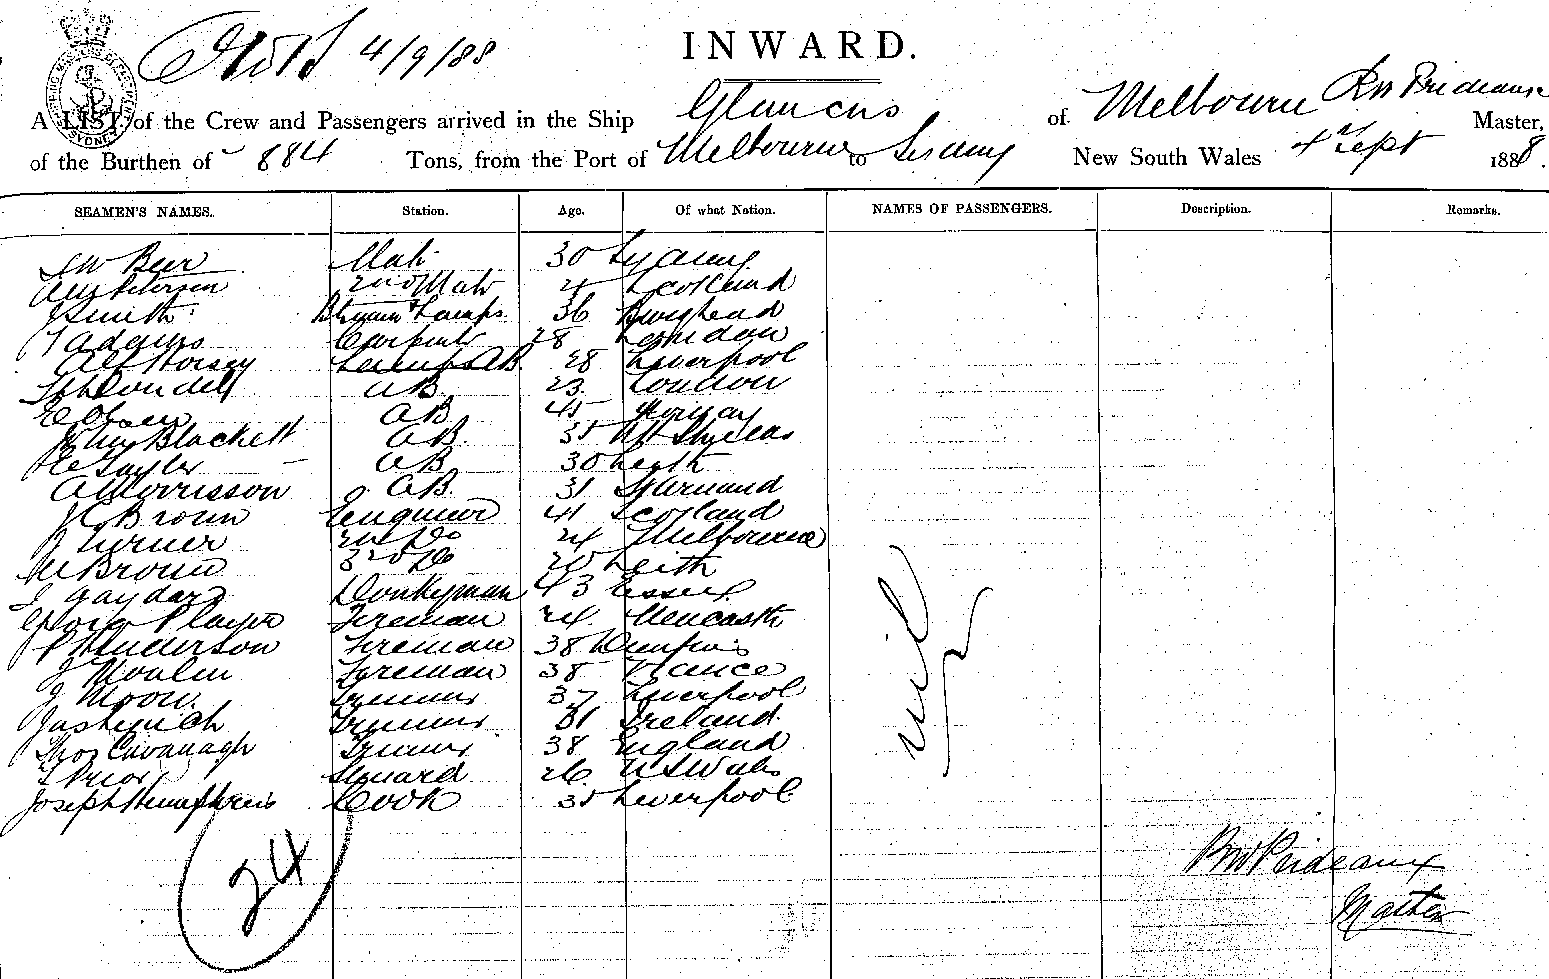 4/9/88
INWARD.
A LIST of the Crew and Passengers arrived in the Ship Glaucus of Melbourne RW Prideaux Master,
of the Burthen of 884 Tons, from the Port of Melbourne to Sydney New South Wales 4th Sept 1888.
SEAMEN'S NAMES. Station. Age. Of what Nation. NAMES OF PASSENGERS. Description. Remarks.
Mate 30 Sydney
2nd Mate Scotland
J Smith Bosun & Lamps 36 Burghead
T Adams Carpenter 28 London
Alf Horsey AB 28 Liverpool
AB 23 London
E Olsen AB 45 Norway
John Blackett AB 35 Nth Shields
Tayler AB 30 Leith
A Morrisson AB 31
J C Brown Engineer 41 Scotland
J Turner 2nd Do 24 Melbourne
W Brown 3rd Do Leith
Donkeyman 43 Essex
George Fireman 24 Newcastle
P Henderson Fireman 38 Dumfries
J Moulin Fireman 38 France
J Moon Trimmer 37 Liverpool
Trimmer 31 Ireland
Thos Cavanagh Trimmer 38 England
T Prior Steward 26 N S Wales
Joseph Humphreis Cook 35 Liverpool
nil
24
RW Prideaux
Master